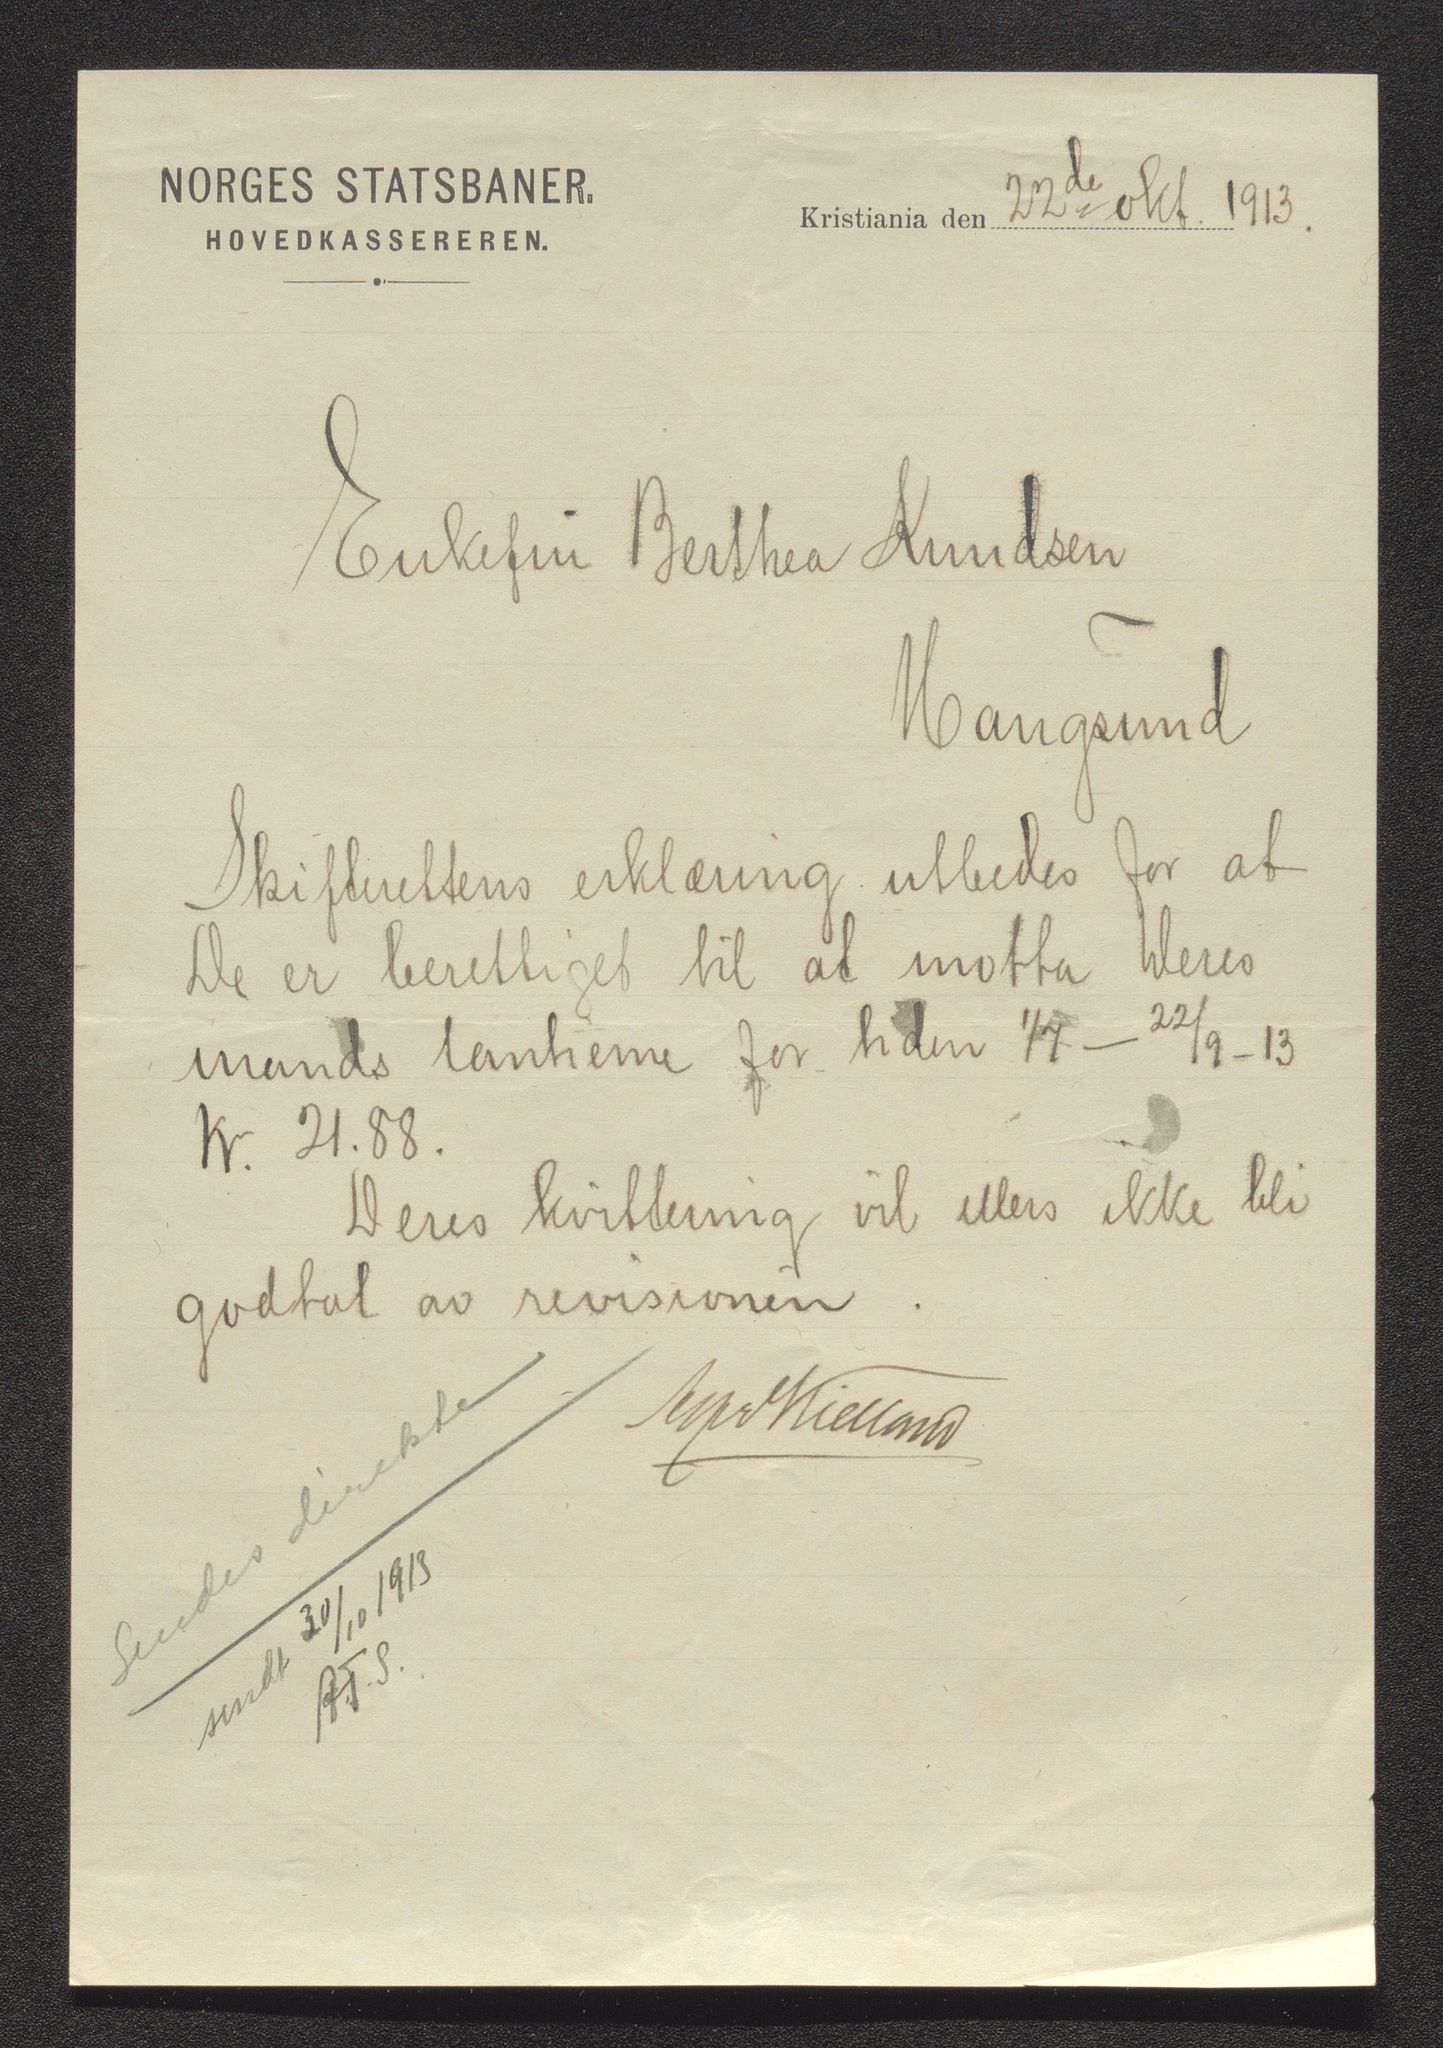 NORGES STATSBANER.
HOVEDKASSEREREN.
Kristiania den 22de okt. 1913.
Enkefru Berthea Knudsen
Haugsund
Skifterettens erklæring utbedes for at
De er berettiget til at motta Deres
mands tantieme for tiden 1/7 — 22/9 – 13
Kr. 21.88.
Deres kvittering vil ellers ikke bli
godtat av revisionen.
Kielland
Sendes direkte
sendt 30/10 1913